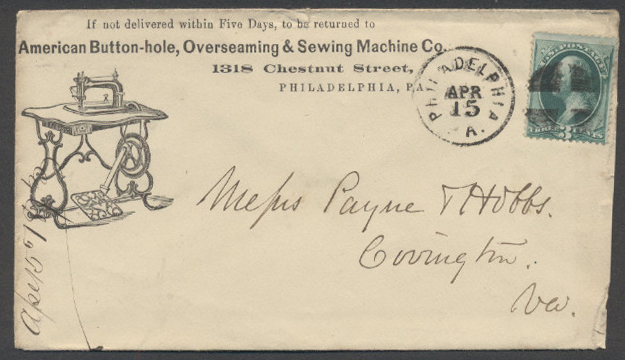 If not delivered within Five Days, to be returned to
American Button-hole, Overseaming & Sewing Machine Co.
1318 Chestnut Street,
PHILADELPHIA, PA
PHILADELPHIA
APR
15
PA.
U.S. POSTAGE
THREE 3 CENTS
Messrs Payne & Hobbs.
Covington.
Va.